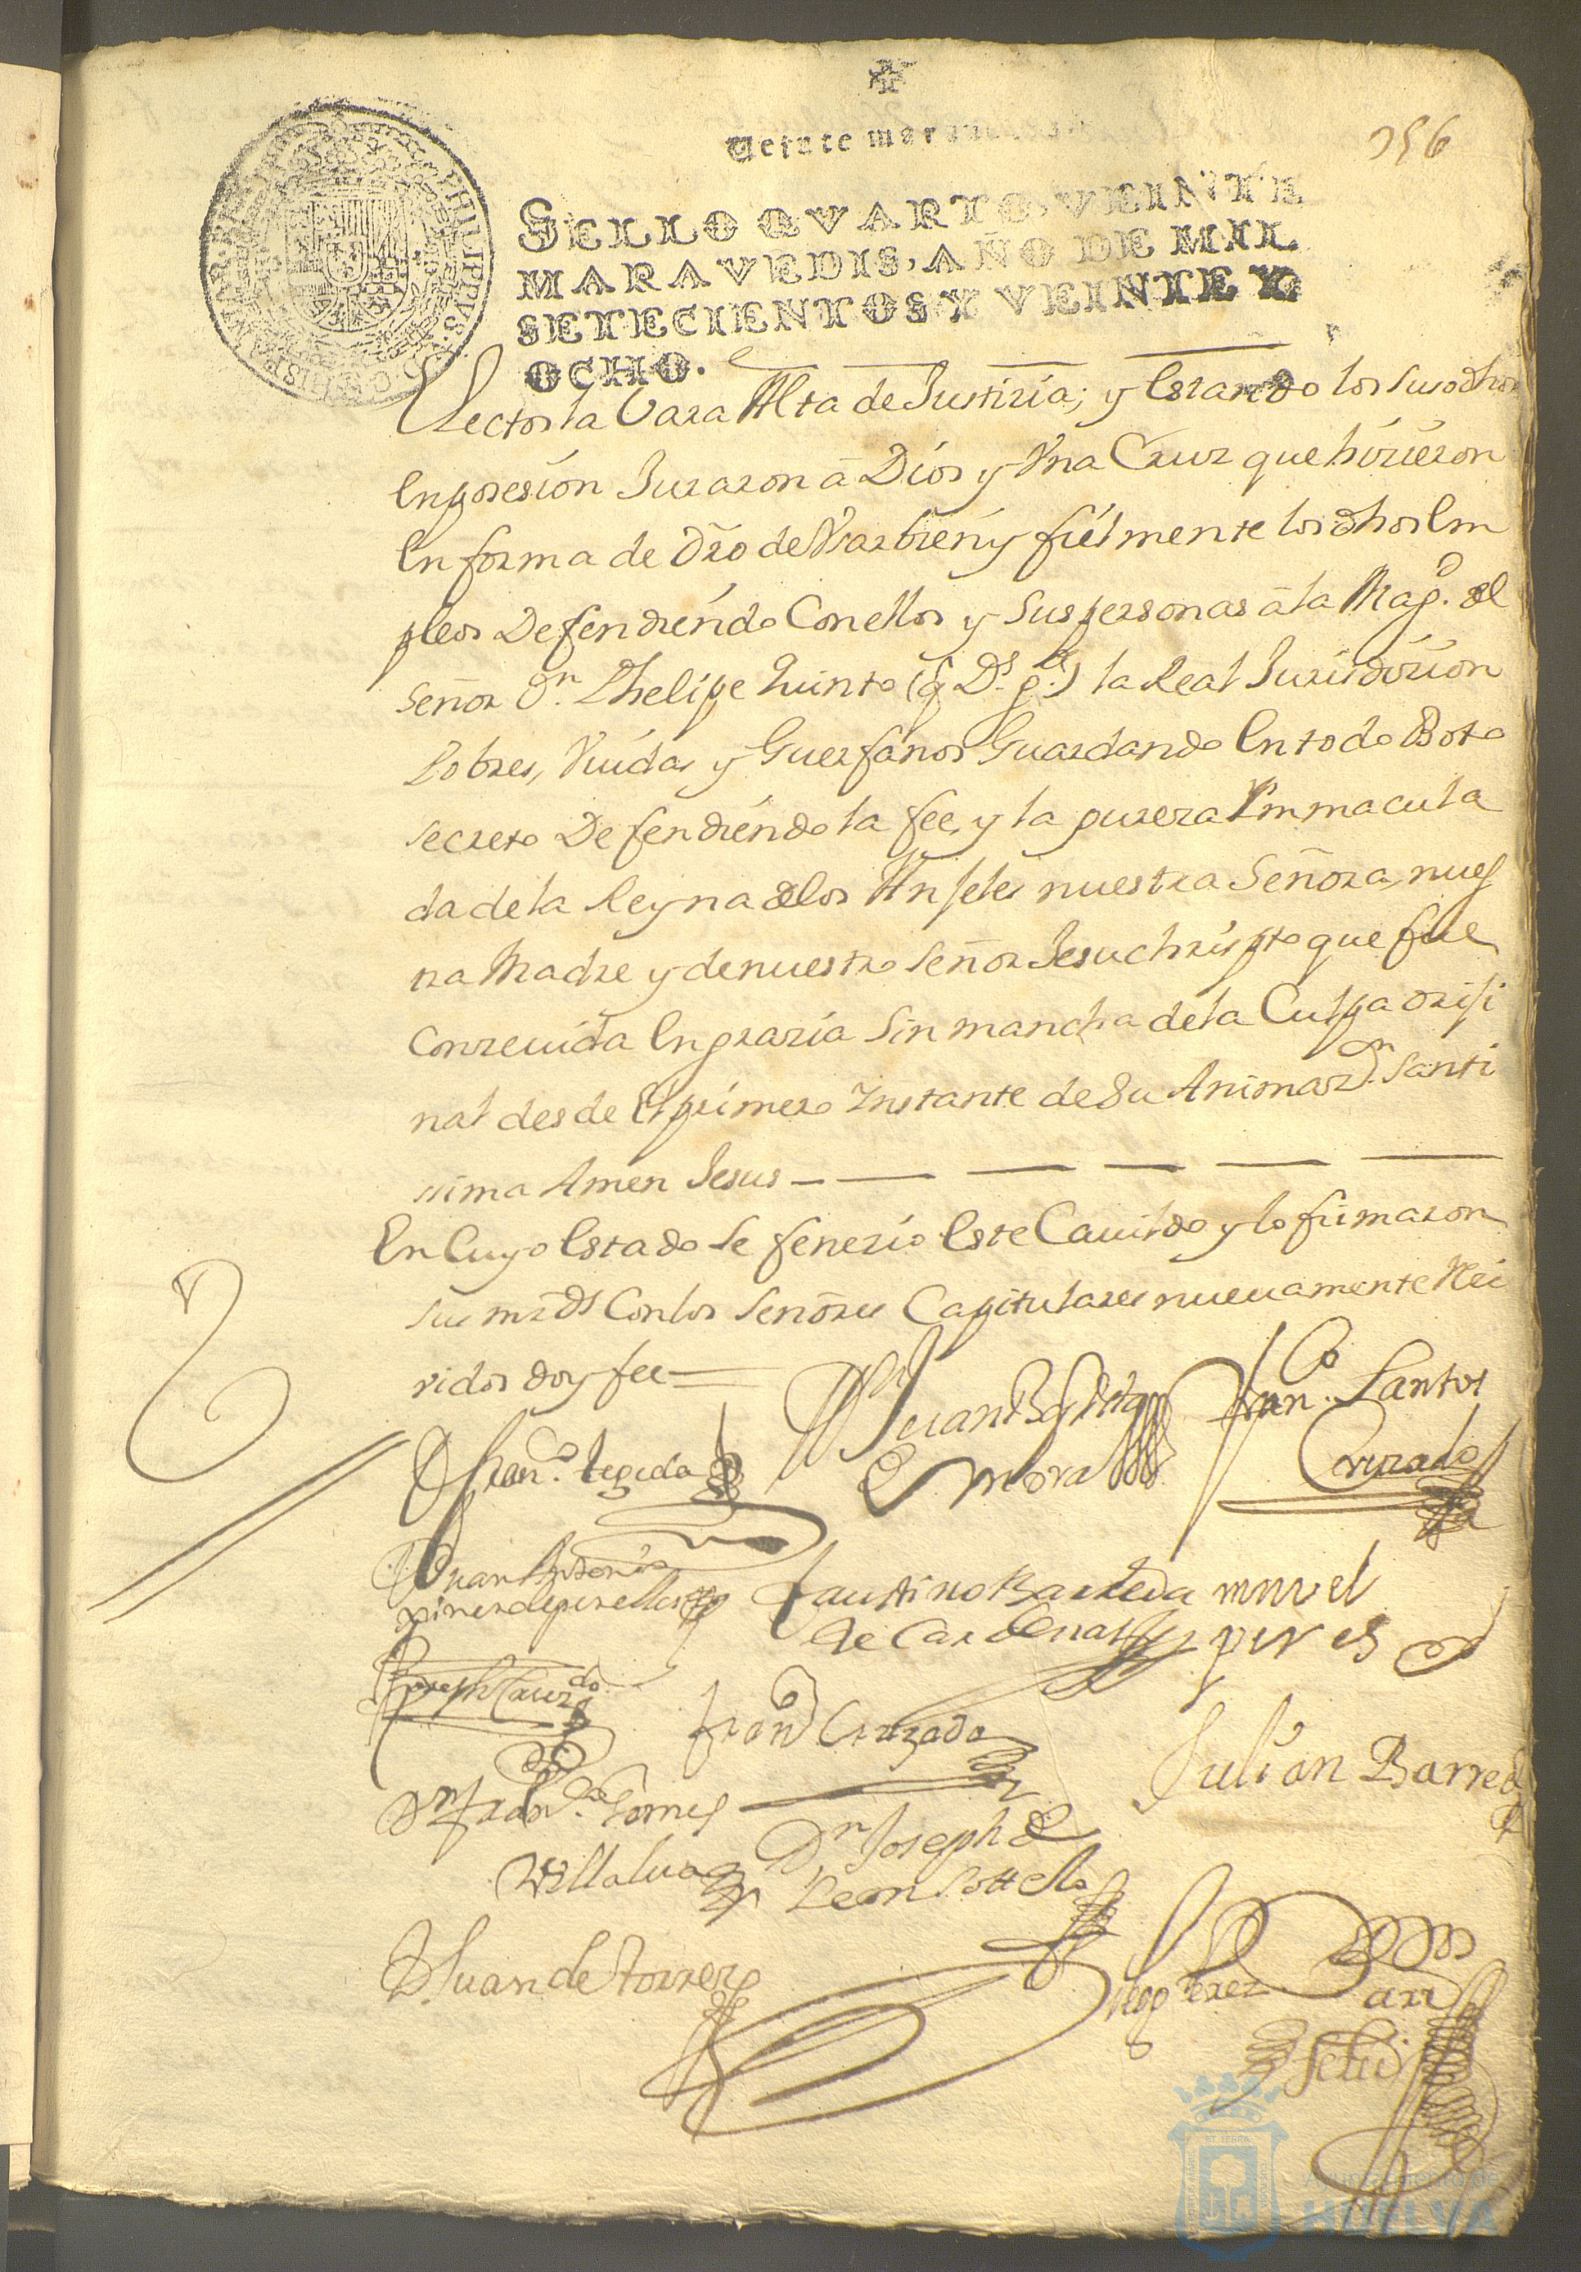 Veinte mara
156
PHILIPPUS V D G HISPANIAR
SELLO QVARTO, VEINTE
MARAVEDIS, AÑO DE MIL
SETECIENTOS Y VEINTE Y
OCHO.
Rectos la Vara Alta de Justizia; y Estando los Susodhos
En posesion Juraron â Dios y Vna Cruz que hizieron
En forma de Dro de Vsar bien y fielmente los dhos Em
pleos Defendiendo Con ellos y Sus personas â la Magd. del
Señor Dn. Phelipe Quinto (q Ds. ge.) la Real Jurisdizion
Pobres, Viudas y Guerfanos Guardando En todo Voto
secreto Defendiendo la fee, y la pureza Ynmacula
da de la Reyna de los Anjeles nuestra Señora, nues
tra Madre y de nuestro Señor Jesuchristo que fue
Conzeuida En grazia Sin mancha de la Culpa oriji
nal desde El primero Instante de Su Animazn. Santi
ssima Amen Jesus
En Cuyo Estado Se fenezio Este Cauildo y lo firmaron
Sus mrds Con los Señores Capitulares nueuamente Rei
vidos doy fee
Dn Juan Baptista
de Mora
Franco. Santos
Cruzado
D Franco. tegeda
D Juan Antonio
ximenez de
Faustino Barreda
de Cardenas
manuel
peres
Joseph Cruzdo
Franco Cruzado
Julian Barreda
Dn Franco. Gomes
Villalua
Dn Joseph de
Leon Sottelo
D. Juan de torres
Diego Perez